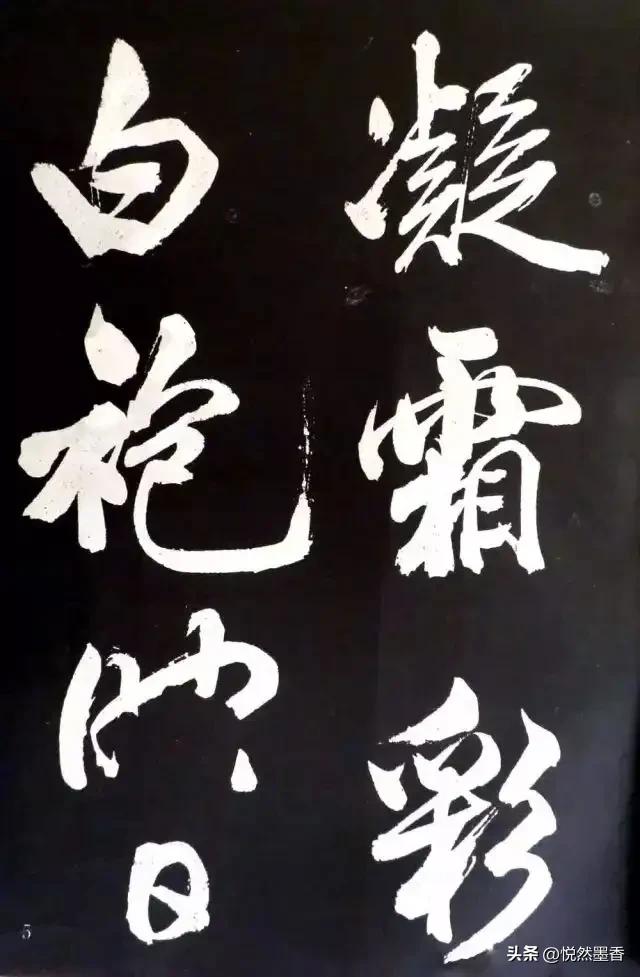 凝霜彩
白袍映日
5
头条 @悦然墨香